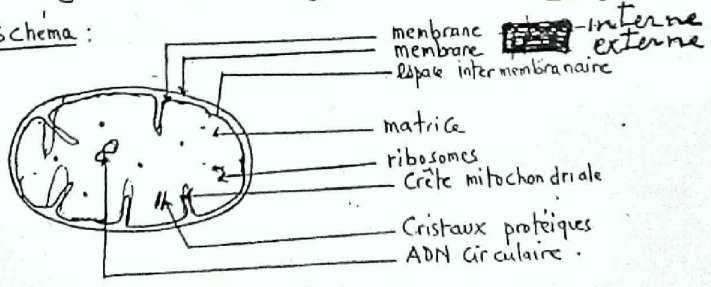 schéma :
membrane interne
membrane externe
espace intermembranaire
matrice
ribosomes
Crête mitochondriale
Cristaux protéiques
ADN Circulaire .